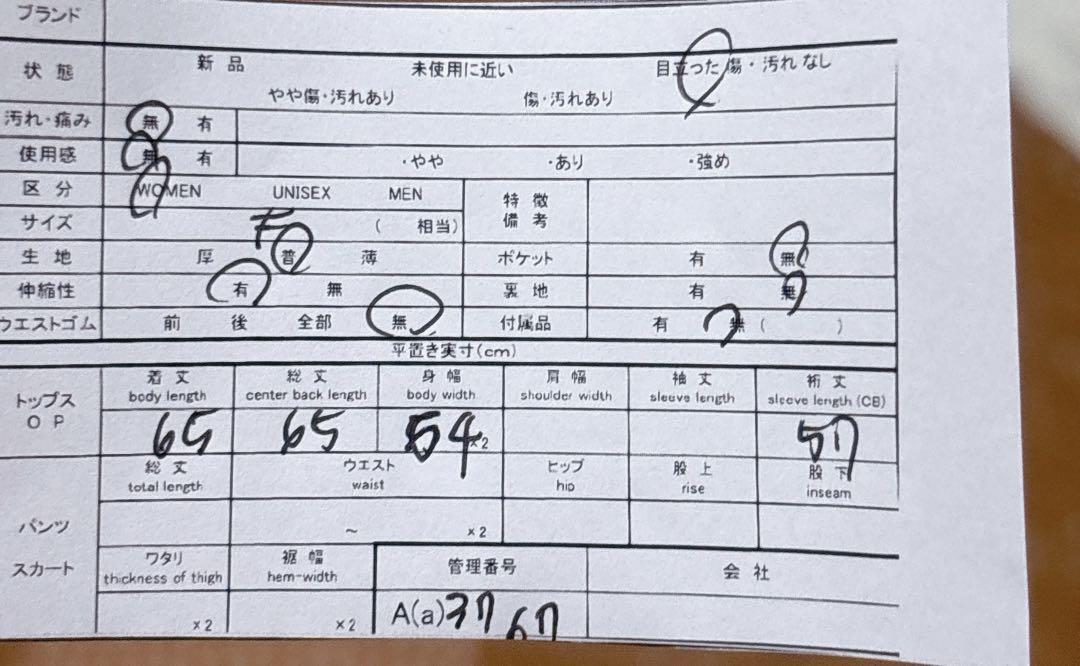 ブランド
状態 新品 未使用に近い 目立った傷・汚れなし
やや傷・汚れあり 傷・汚れあり
汚れ・痛み 無 有
使用感 無 有 ・やや ・あり ・強め
区分 WOMEN UNISEX MEN 特徴
備考
サイズ F ( 相当)
生地 厚 普 薄 ポケット 有 無
伸縮性 有 無 裏地 有 無
ウエストゴム 前 後 全部 無 付属品 有 無 ( )
平置き実寸(cm)
トップス 着丈 総丈 身幅 肩幅 袖丈 裄丈
OP body length center back length body width shoulder width sleeve length sleeve length (CB)
65 65 54×2 57
総丈 ウエスト ヒップ 股上 股下
total length waist hip rise inseam
パンツ ~ ×2
スカート ワタリ 裾幅 管理番号 会社
thickness of thigh hem-width
×2 ×2 A(a)37 67